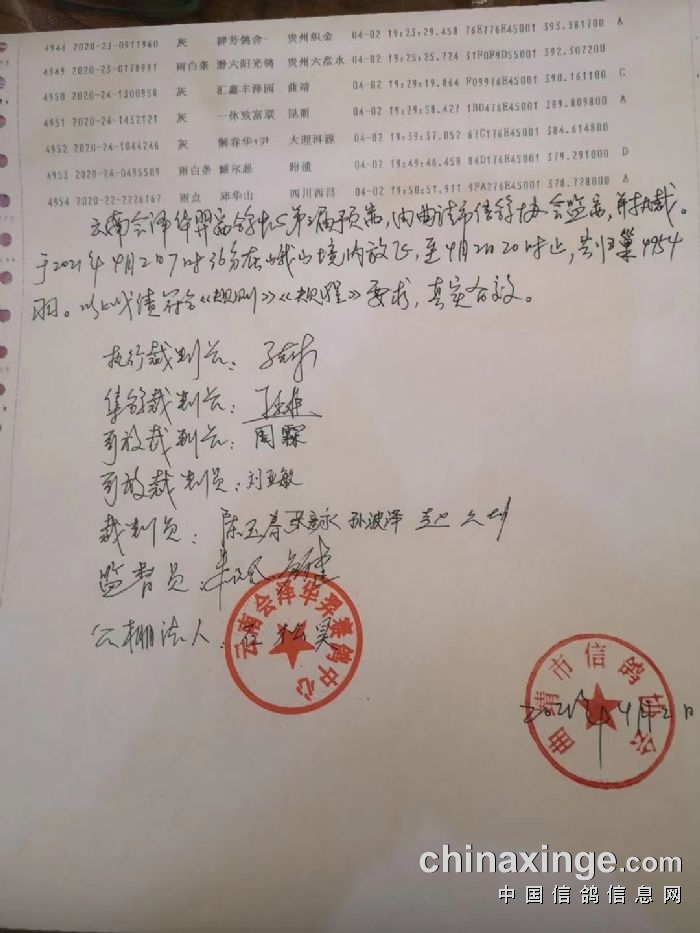 4948 2020-23-0911960 灰 稗芳鸽舍 贵州织金 04-02 19:23:29.458 76B776B45001 393.381700 A
4949 2020-23-0178991 雨白条 黔六阳光鸽 贵州六盘水 04-02 19:25:25.724 392.307200
4950 2020-24-1300958 灰 汇鑫丰泽园 曲靖 04-02 19:29:19.864 F09976B45001 390.161100 C
4951 2020-24-1432121 灰 一休致富联 昆明 04-02 19:29:58.427 1BD476B45001 389.809800 A
4952 2020-24-1044246 灰 解春华+尹 大理洱源 04-02 19:39:37.052 67C176B45001 384.614800
4953 2020-24-0495509 雨白条 昭通 04-02 19:49:46.458 84D176B45001 379.291000 D
4954 2020-22-2226167 雨点 邱华山 四川西昌 04-02 19:50:51.911 9FA276B45001 378.728000 A
云南会泽华翼赛鸽中心第2届预赛，由曲靖市信鸽协会监赛，并执裁。
于2021年4月2日7时36分在峨山境内放飞，至4月2日20时止，共归巢4954
羽。以上成绩符合《规则》《规程》要求，真实有效。
执行裁判长：
集鸽裁判长：
司放裁判长：周霖
司放裁判员：刘亚敏
裁判员：陈玉寿 孙波泽
监督员：
公棚法人：
云南会泽华翼赛鸽中心
曲靖市信鸽协会
2021年4月2日
chinaxinge.com
中国信鸽信息网